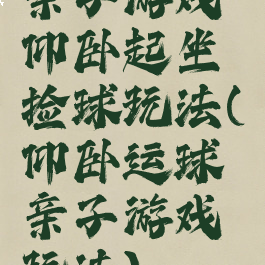 亲子游戏
仰卧起坐
捡球玩法(
仰卧运球
亲子游戏
玩法)